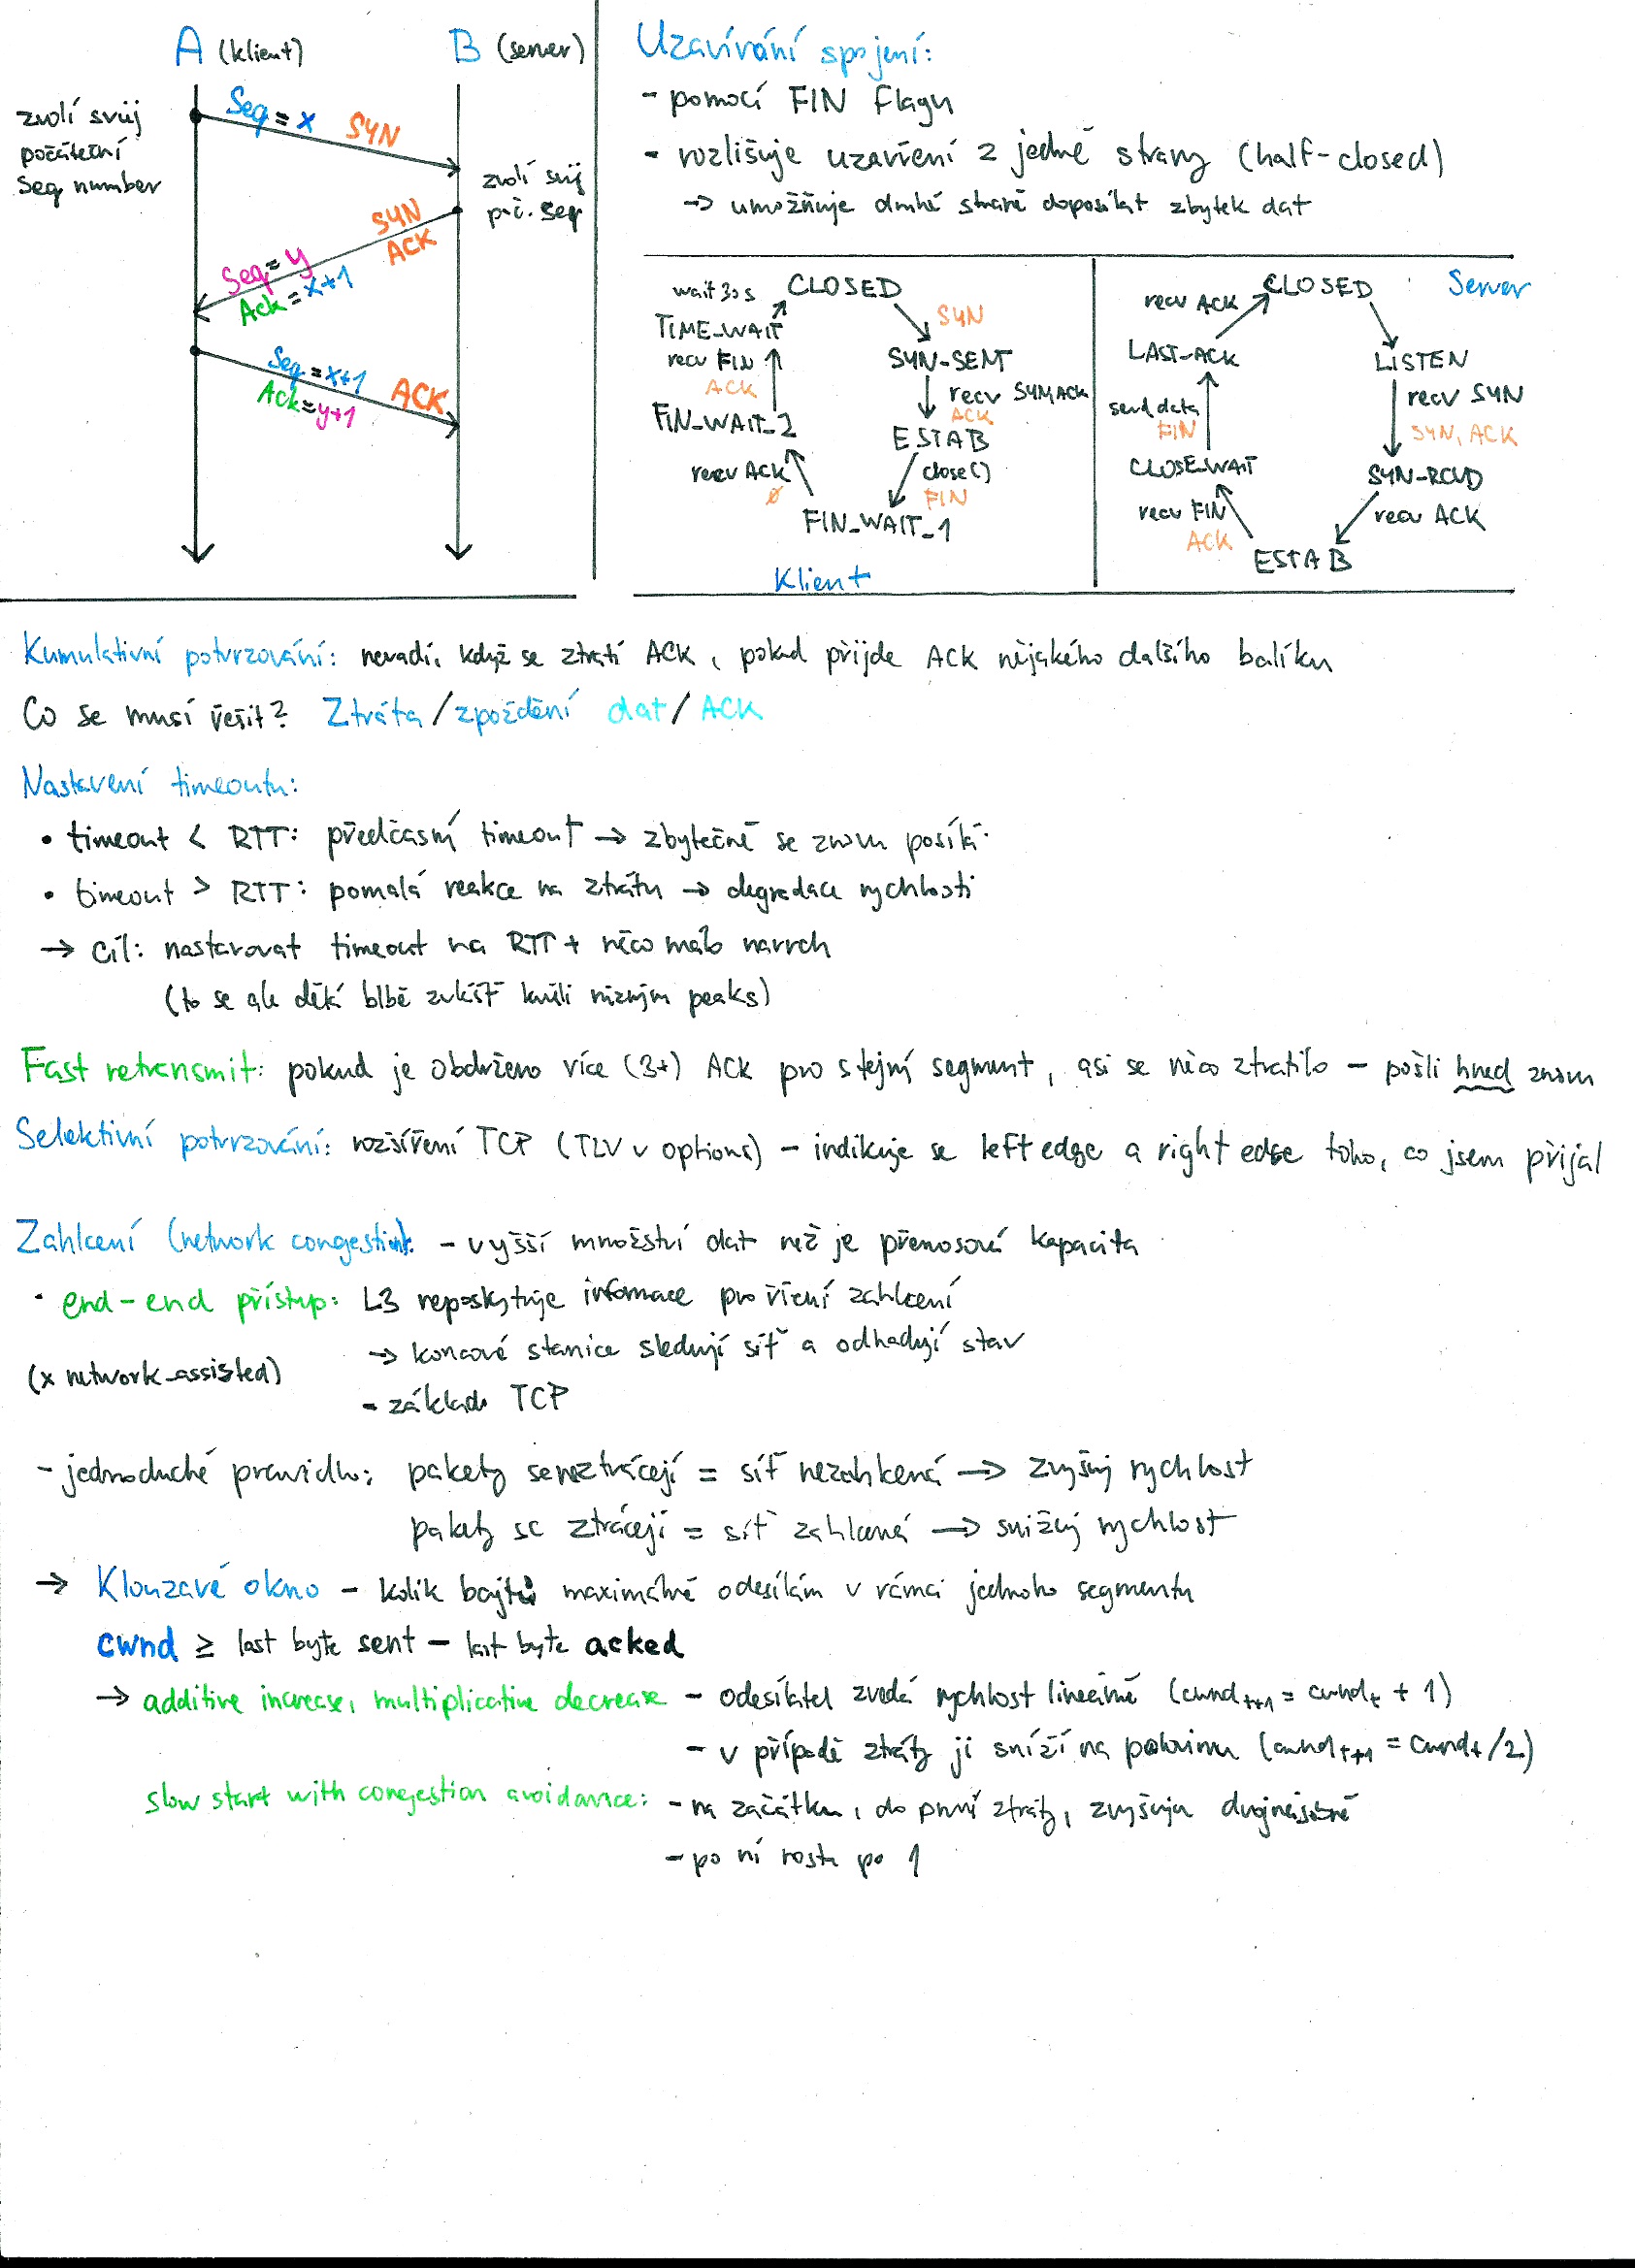 A (klient)
B (server)
zvolí svůj
počáteční
Seq number
Seq = x SYN
zvolí svůj
poč. seq
SYN
ACK
Seq = y
Ack = x+1
Seq = x+1
Ack = y+1
ACK
Uzavírání spojení:
- pomocí FIN flagu
- rozlišuje uzavření z jedné strany (half-closed)
→ umožňuje druhé straně doposílat zbytek dat
wait 30s
CLOSED
SYN
TIME_WAIT
recv FIN
ACK
SYN-SENT
recv SYN,ACK
ACK
FIN_WAIT_2
ESTAB
recv ACK
∅
close()
FIN
FIN_WAIT_1
Klient
Server
recv ACK
CLOSED
LAST-ACK
LISTEN
send data
FIN
recv SYN
SYN, ACK
CLOSE_WAIT
SYN-RCVD
recv FIN
ACK
recv ACK
ESTAB
Kumulativní potvrzování: nevadí, když se ztratí ACK, pokud přijde ACK nějakého dalšího balíku
Co se musí řešit? Ztráta/zpoždění dat/ACK
Nastavení timeoutu:
• timeout < RTT: předčasný timeout → zbytečně se znovu posílá
• timeout > RTT: pomalá reakce na ztrátu → degradace rychlosti
→ Cíl: nastavovat timeout na RTT + něco málo navrch
(to se ale dělá blbě zvlášť kvůli různým peaks)
Fast retransmit: pokud je obdrženo více (3+) ACK pro stejný segment, asi se něco ztratilo - pošli hned znovu
Selektivní potvrzování: rozšíření TCP (TLV v options) - indikuje se left edge a right edge toho, co jsem přijal
Zahlcení (network congestion): - vyšší množství dat než je přenosová kapacita
• end-end přístup: L3 neposkytuje informace pro řízení zahlcení
→ koncové stanice sledují síť a odhadují stav
(x network-assisted)
- základ TCP
- jednoduché pravidlo: pakety se neztrácejí = síť nezahlcená → zvyšuj rychlost
pakety se ztrácejí = síť zahlcená → snižuj rychlost
→ Klouzavé okno - kolik bajtů maximálně odesílám v rámci jednoho segmentu
cwnd ≥ last byte sent - last byte acked
→ additive increase, multiplicative decrease - odesílatel zvedá rychlost lineárně (cwnd_t+1 = cwnd_t + 1)
- v případě ztráty ji sníží na polovinu (cwnd_t+1 = cwnd_t/2)
slow start with congestion avoidance: - na začátku, do první ztráty, zvyšuju dvojnásobně
- po ní rostu po 1